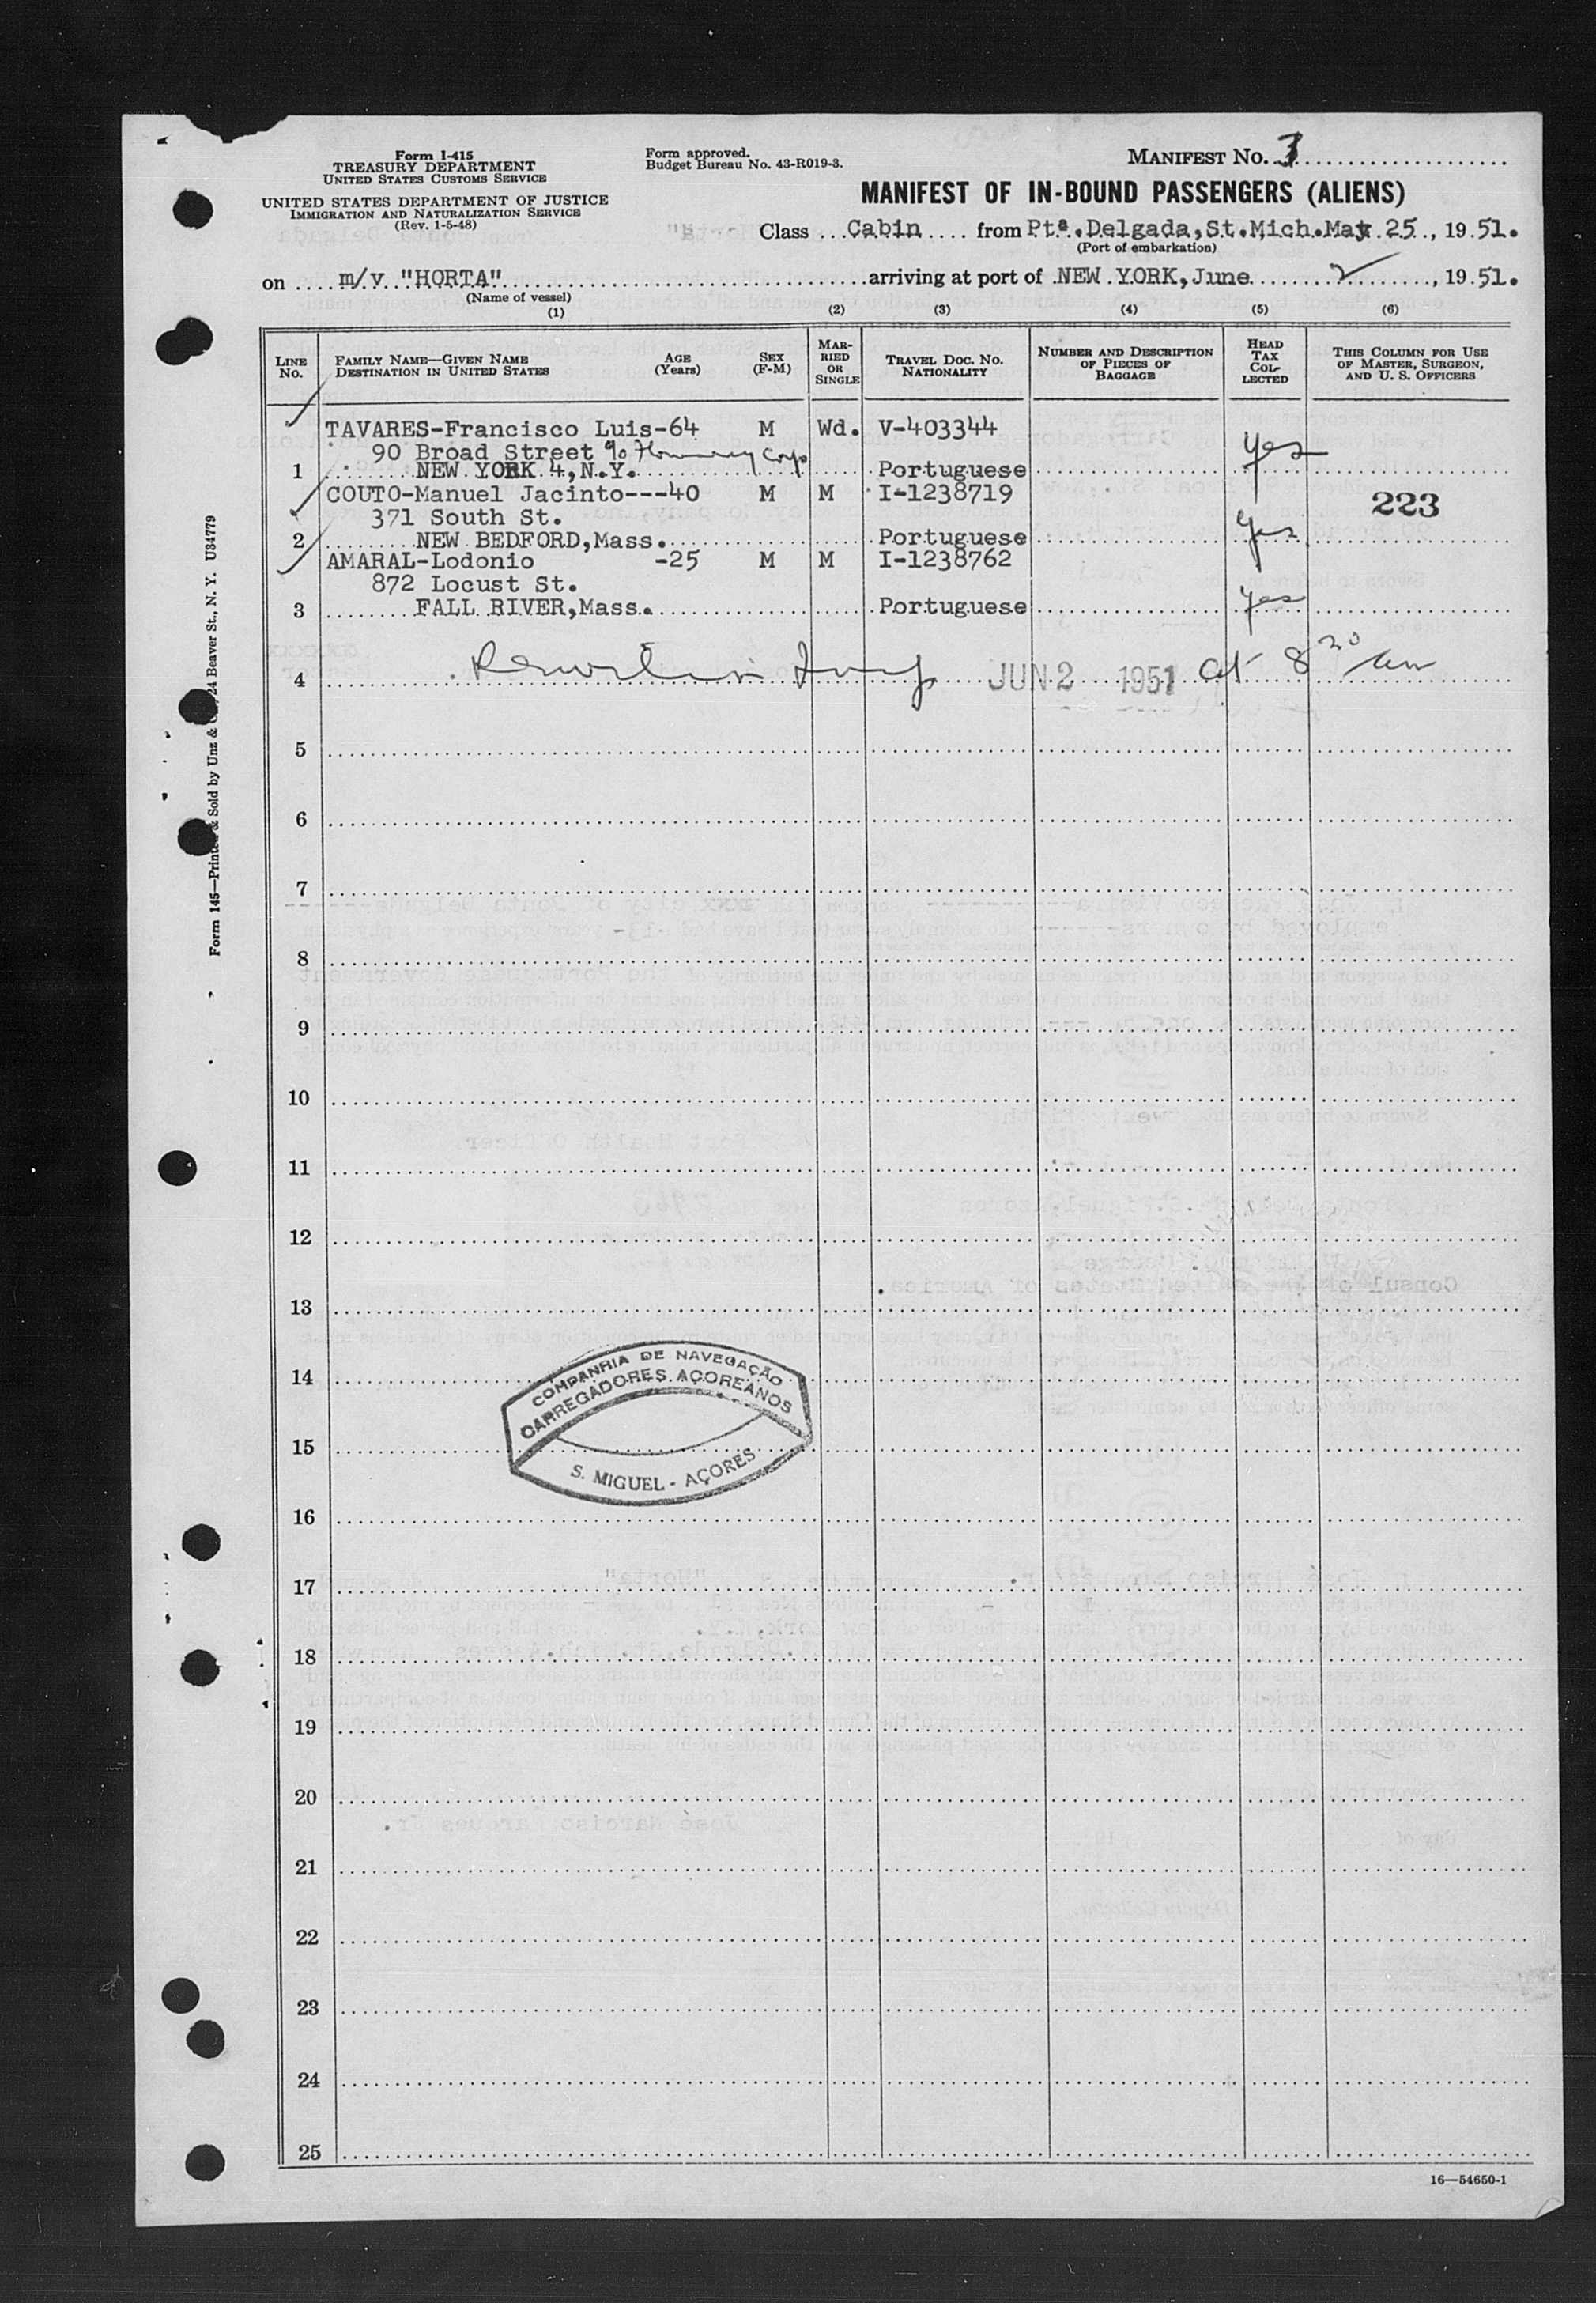 Form I-415
TREASURY DEPARTMENT
UNITED STATES CUSTOMS SERVICE
UNITED STATES DEPARTMENT OF JUSTICE
IMMIGRATION AND NATURALIZATION SERVICE
(Rev. 1-5-48)
Form approved.
Budget Bureau No. 43-R019-3.
MANIFEST NO. 3
MANIFEST OF IN-BOUND PASSENGERS (ALIENS)
Class Cabin from Ptª.Delgada, St.Mich. May 25, 1951.
(Port of embarkation)
on m/v "HORTA" arriving at port of NEW YORK, June 2, 1951.
(Name of vessel)
(1) (2) (3) (4) (5) (6)
LINE NO. FAMILY NAME—GIVEN NAME DESTINATION IN UNITED STATES AGE (Years) SEX (F-M) MARRIED OR SINGLE TRAVEL DOC. NO. NATIONALITY NUMBER AND DESCRIPTION OF PIECES OF BAGGAGE HEAD TAX COLLECTED THIS COLUMN FOR USE OF MASTER, SURGEON, AND U. S. OFFICERS
TAVARES-Francisco Luis-64 M Wd. V-403344
90 Broad Street c/o Corp yes
1 NEW YORK 4, N.Y. Portuguese
COUTO-Manuel Jacinto---40 M M I-1238719 223
371 South St. yes
2 NEW BEDFORD, Mass. Portuguese
AMARAL-Lodonio -25 M M I-1238762
872 Locust St.
3 FALL RIVER, Mass. Portuguese yes
4 JUN 2 1951 at 8 30 am
5
6
7
8
9
10
11
12
13
14
15
16
17
18
19
20
21
22
23
24
25
COMPANHIA DE NAVEGAÇÃO
CARREGADORES AÇOREANOS
S. MIGUEL - AÇORES
16—54650-1
Form 145—Printed & Sold by Unz & Co., 24 Beaver St., N. Y. U34779